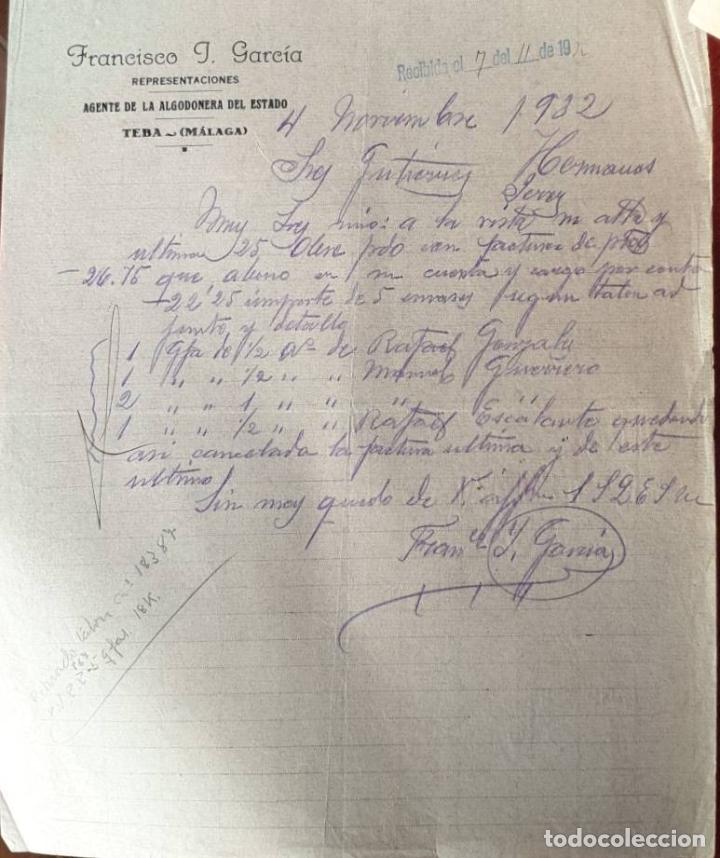 Francisco J. García
REPRESENTACIONES
AGENTE DE LA ALGODONERA DEL ESTADO
TEBA ~ (MÁLAGA)
Recibida el 7 del 11 de 19
4 Noviembre 1932
Sres Gutierrez Hermanos
Jerez
Muy Sres mios: a la vista su atta y
ultima 25, Obre pdo con factura de pts
26.75 que abono en su cuenta y cargo por conto
22,25 importe de 5 envases segun talon ad
junto y detalle
1 Gfa de 1/2 @ de Rafael Gonzalez
1 " " 1/2 " " Manuel Guerrero
2 " " 1 " " "
1 " " 1/2 " " Rafael Escalante quedando
asi cancelada la factura ultima y de este
ultimo
Sin mas quedo de V. 
Franco J. García
talon nº 18387
5 gfas. 18K.
todocoleccion